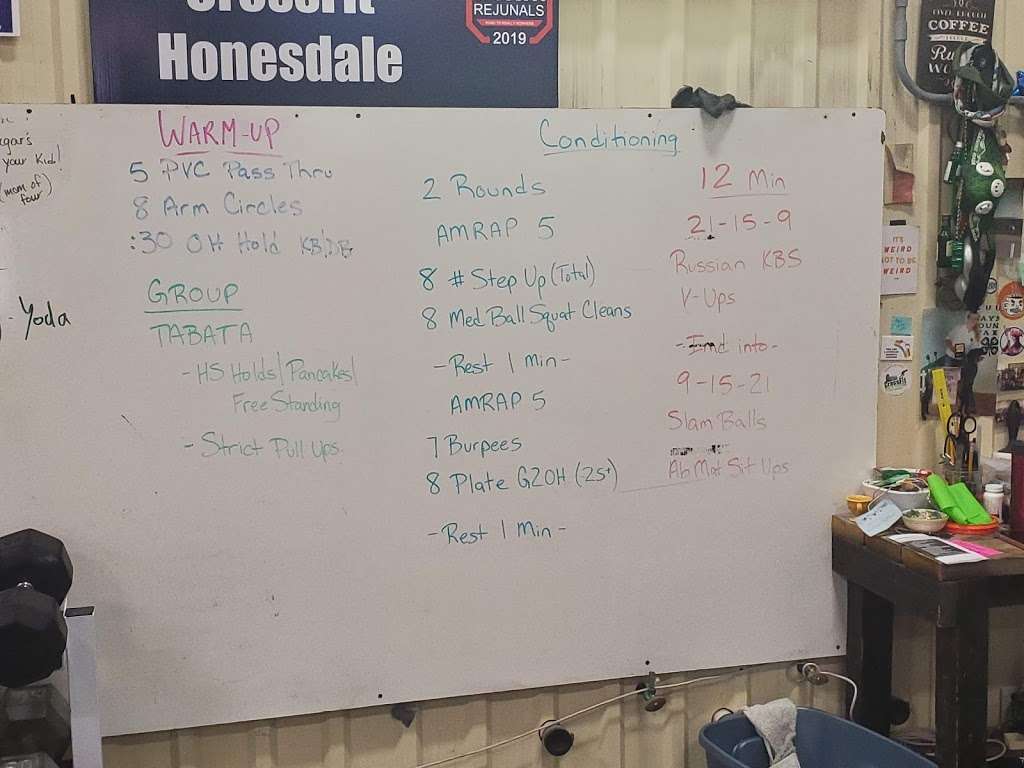 Honesdale
REJUNALS
2019
COFFEE
your Kid!
(mom of
four)
Yoda
WARM-UP
5 PVC Pass Thru
8 Arm Circles
:30 OH Hold KB/DB
GROUP
TABATA
- HS Holds/Pancakes/
Free Standing
- Strict Pull Ups
Conditioning
2 Rounds
AMRAP 5
8 # Step Up (Total)
8 Med Ball Squat Cleans
- Rest 1 min -
AMRAP 5
7 Burpees
8 Plate G2OH (25+)
- Rest 1 Min -
12 Min
21-15-9
Russian KBS
V-Ups
- Imd into -
9-15-21
Slam Balls
Ab Mat Sit Ups
IT'S
WEIRD
NOT TO BE
WEIRD